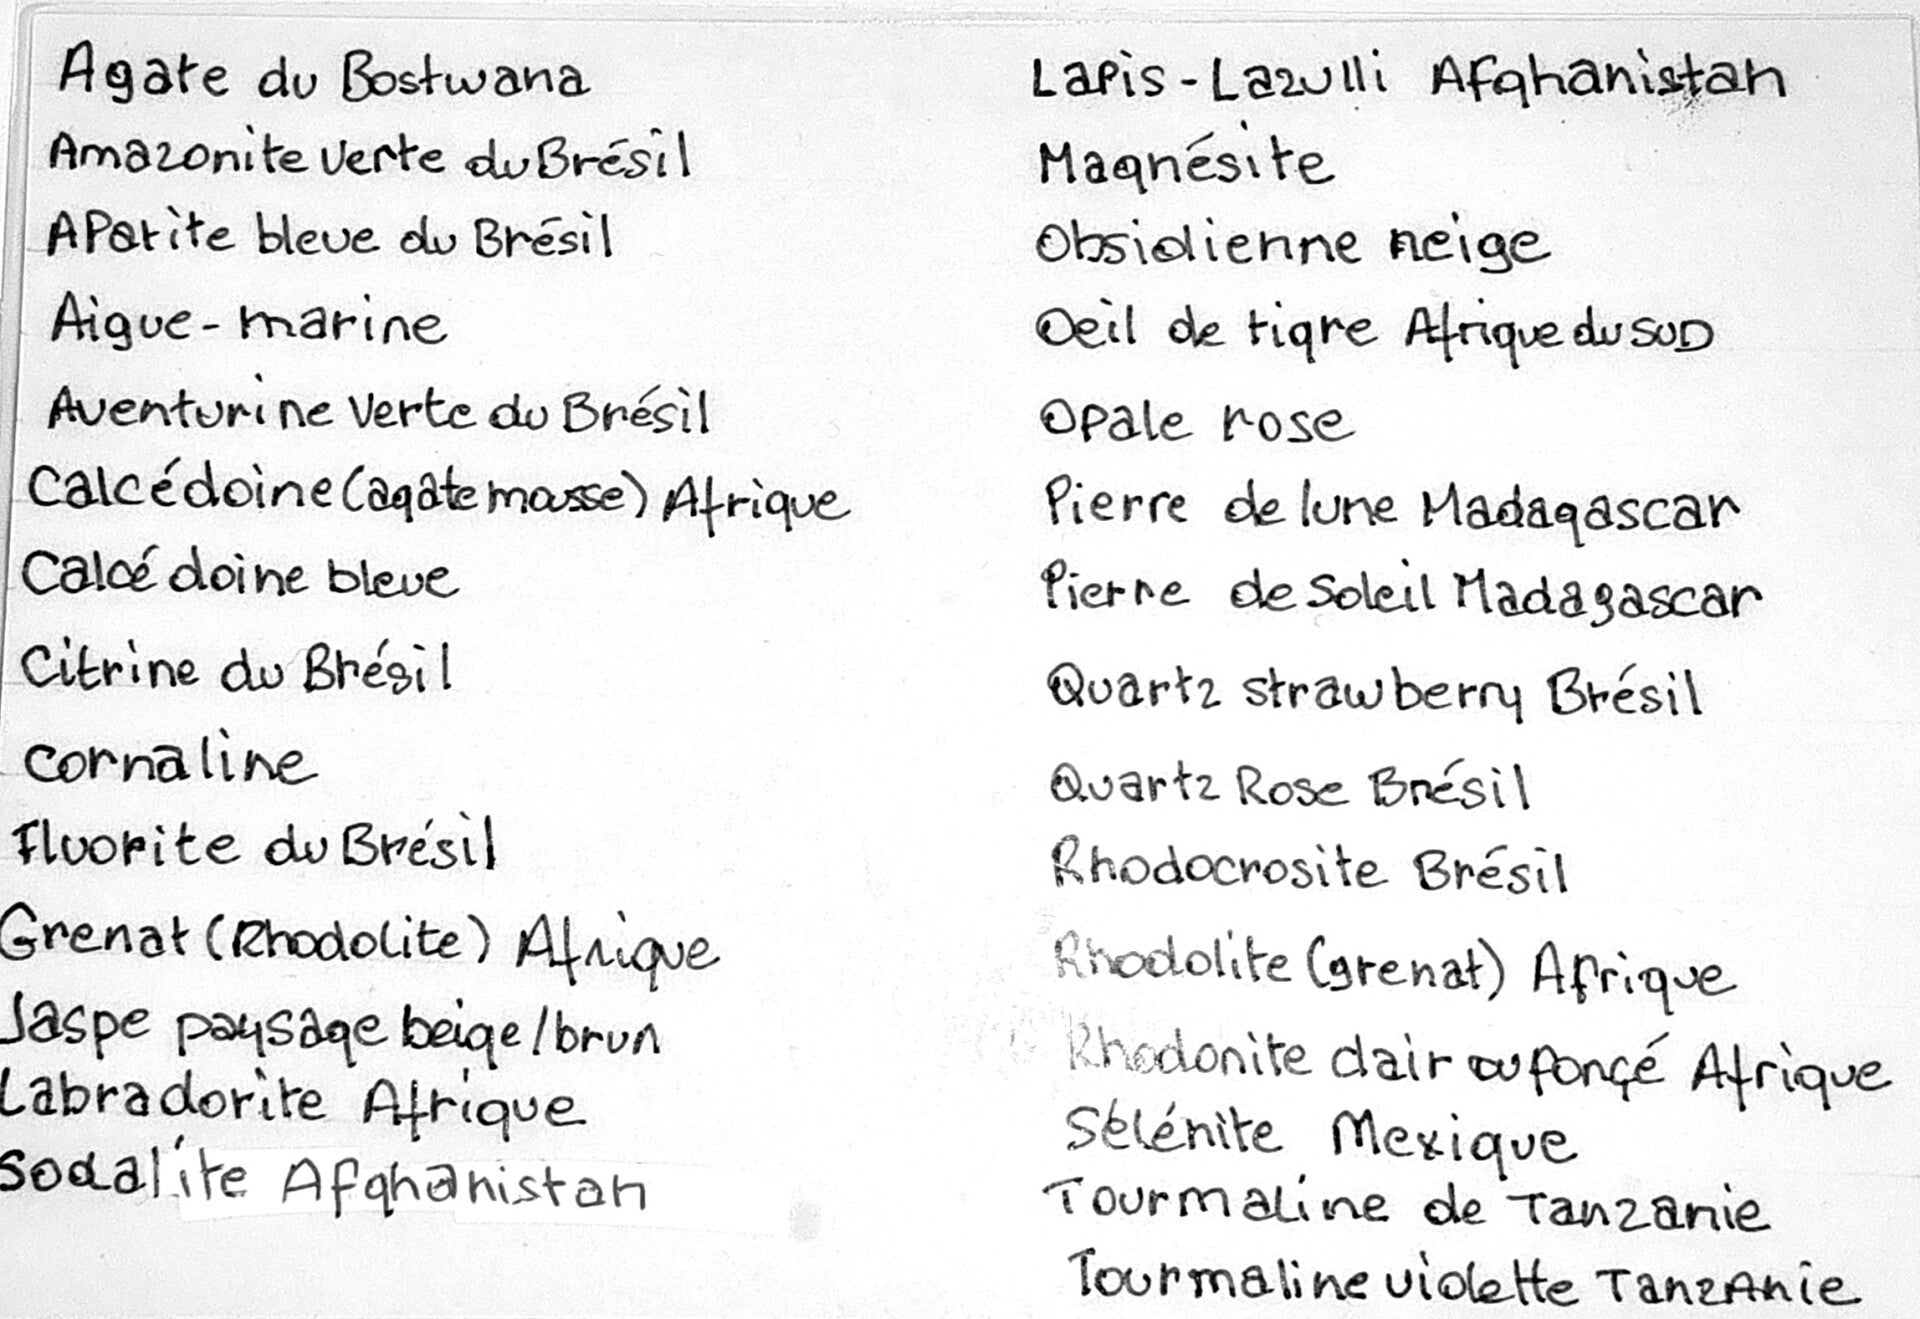 Agate du Bostwana
Amazonite verte du Brésil
APatite bleue du Brésil
Aigue-marine
Aventurine verte du Brésil
Calcédoine (agate mousse) Afrique
Calcédoine bleue
Citrine du Brésil
Cornaline
Fluorite du Brésil
Grenat (Rhodolite) Afrique
Jaspe paysage beige/brun
Labradorite Afrique
Sodalite Afghanistan
Lapis-Lazulli Afghanistan
Magnésite
Obsidienne neige
Oeil de tigre Afrique du SUD
Opale rose
Pierre de lune Madagascar
Pierre de Soleil Madagascar
Quartz strawberry Brésil
Quartz Rose Brésil
Rhodocrosite Brésil
Rhodolite (grenat) Afrique
Rhodonite clair ou fonçé Afrique
Sélénite Mexique
Tourmaline de Tanzanie
Tourmaline violette TanzAnie